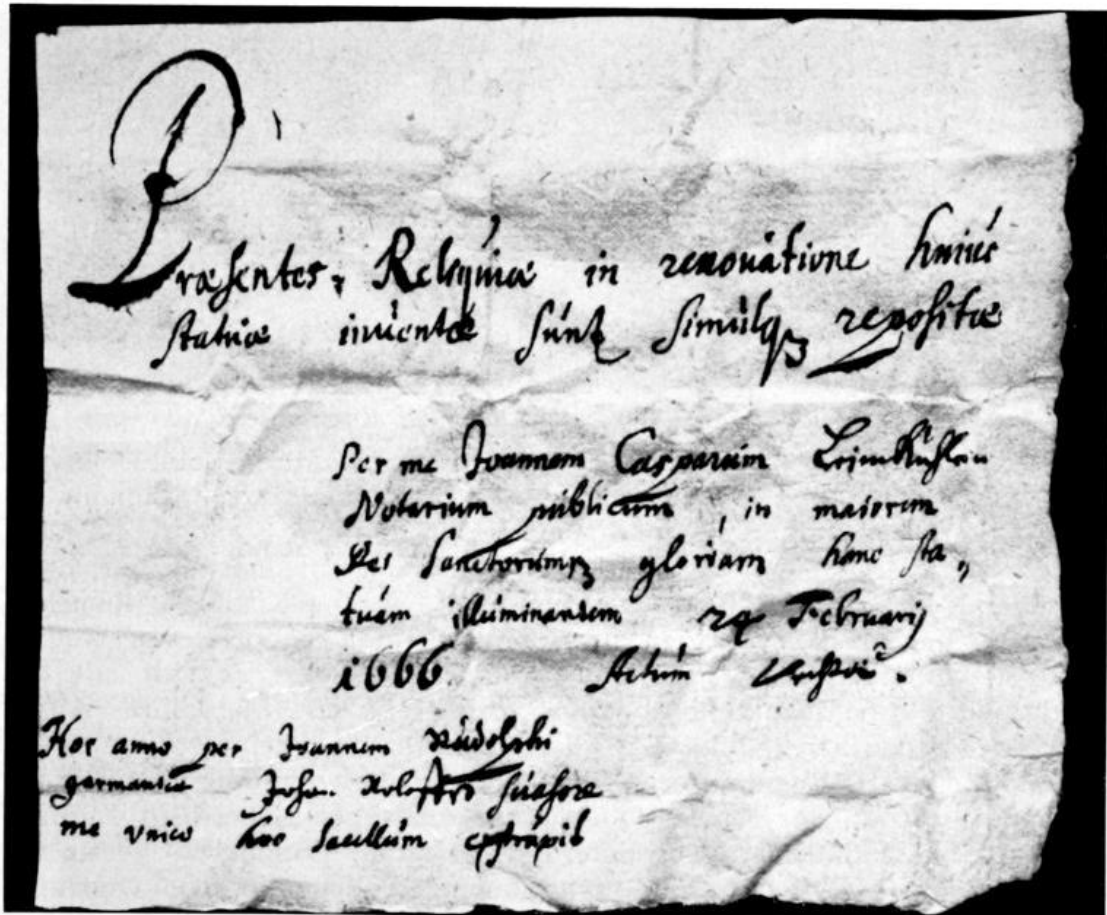 Præsentes, Reliquiæ in renouatione huius
statuæ inuentæ sunt simulq3 repositæ
Per me Joannem Casparum
Notarium publicum, in maiorem
Dei Sanctorumq3 gloriam hanc sta„
tuam illuminantem 24 Februarij
1666. Actum
Hoc anno per Joannem Rudolphi
Johan. suasore
me vnico hoc sacellum